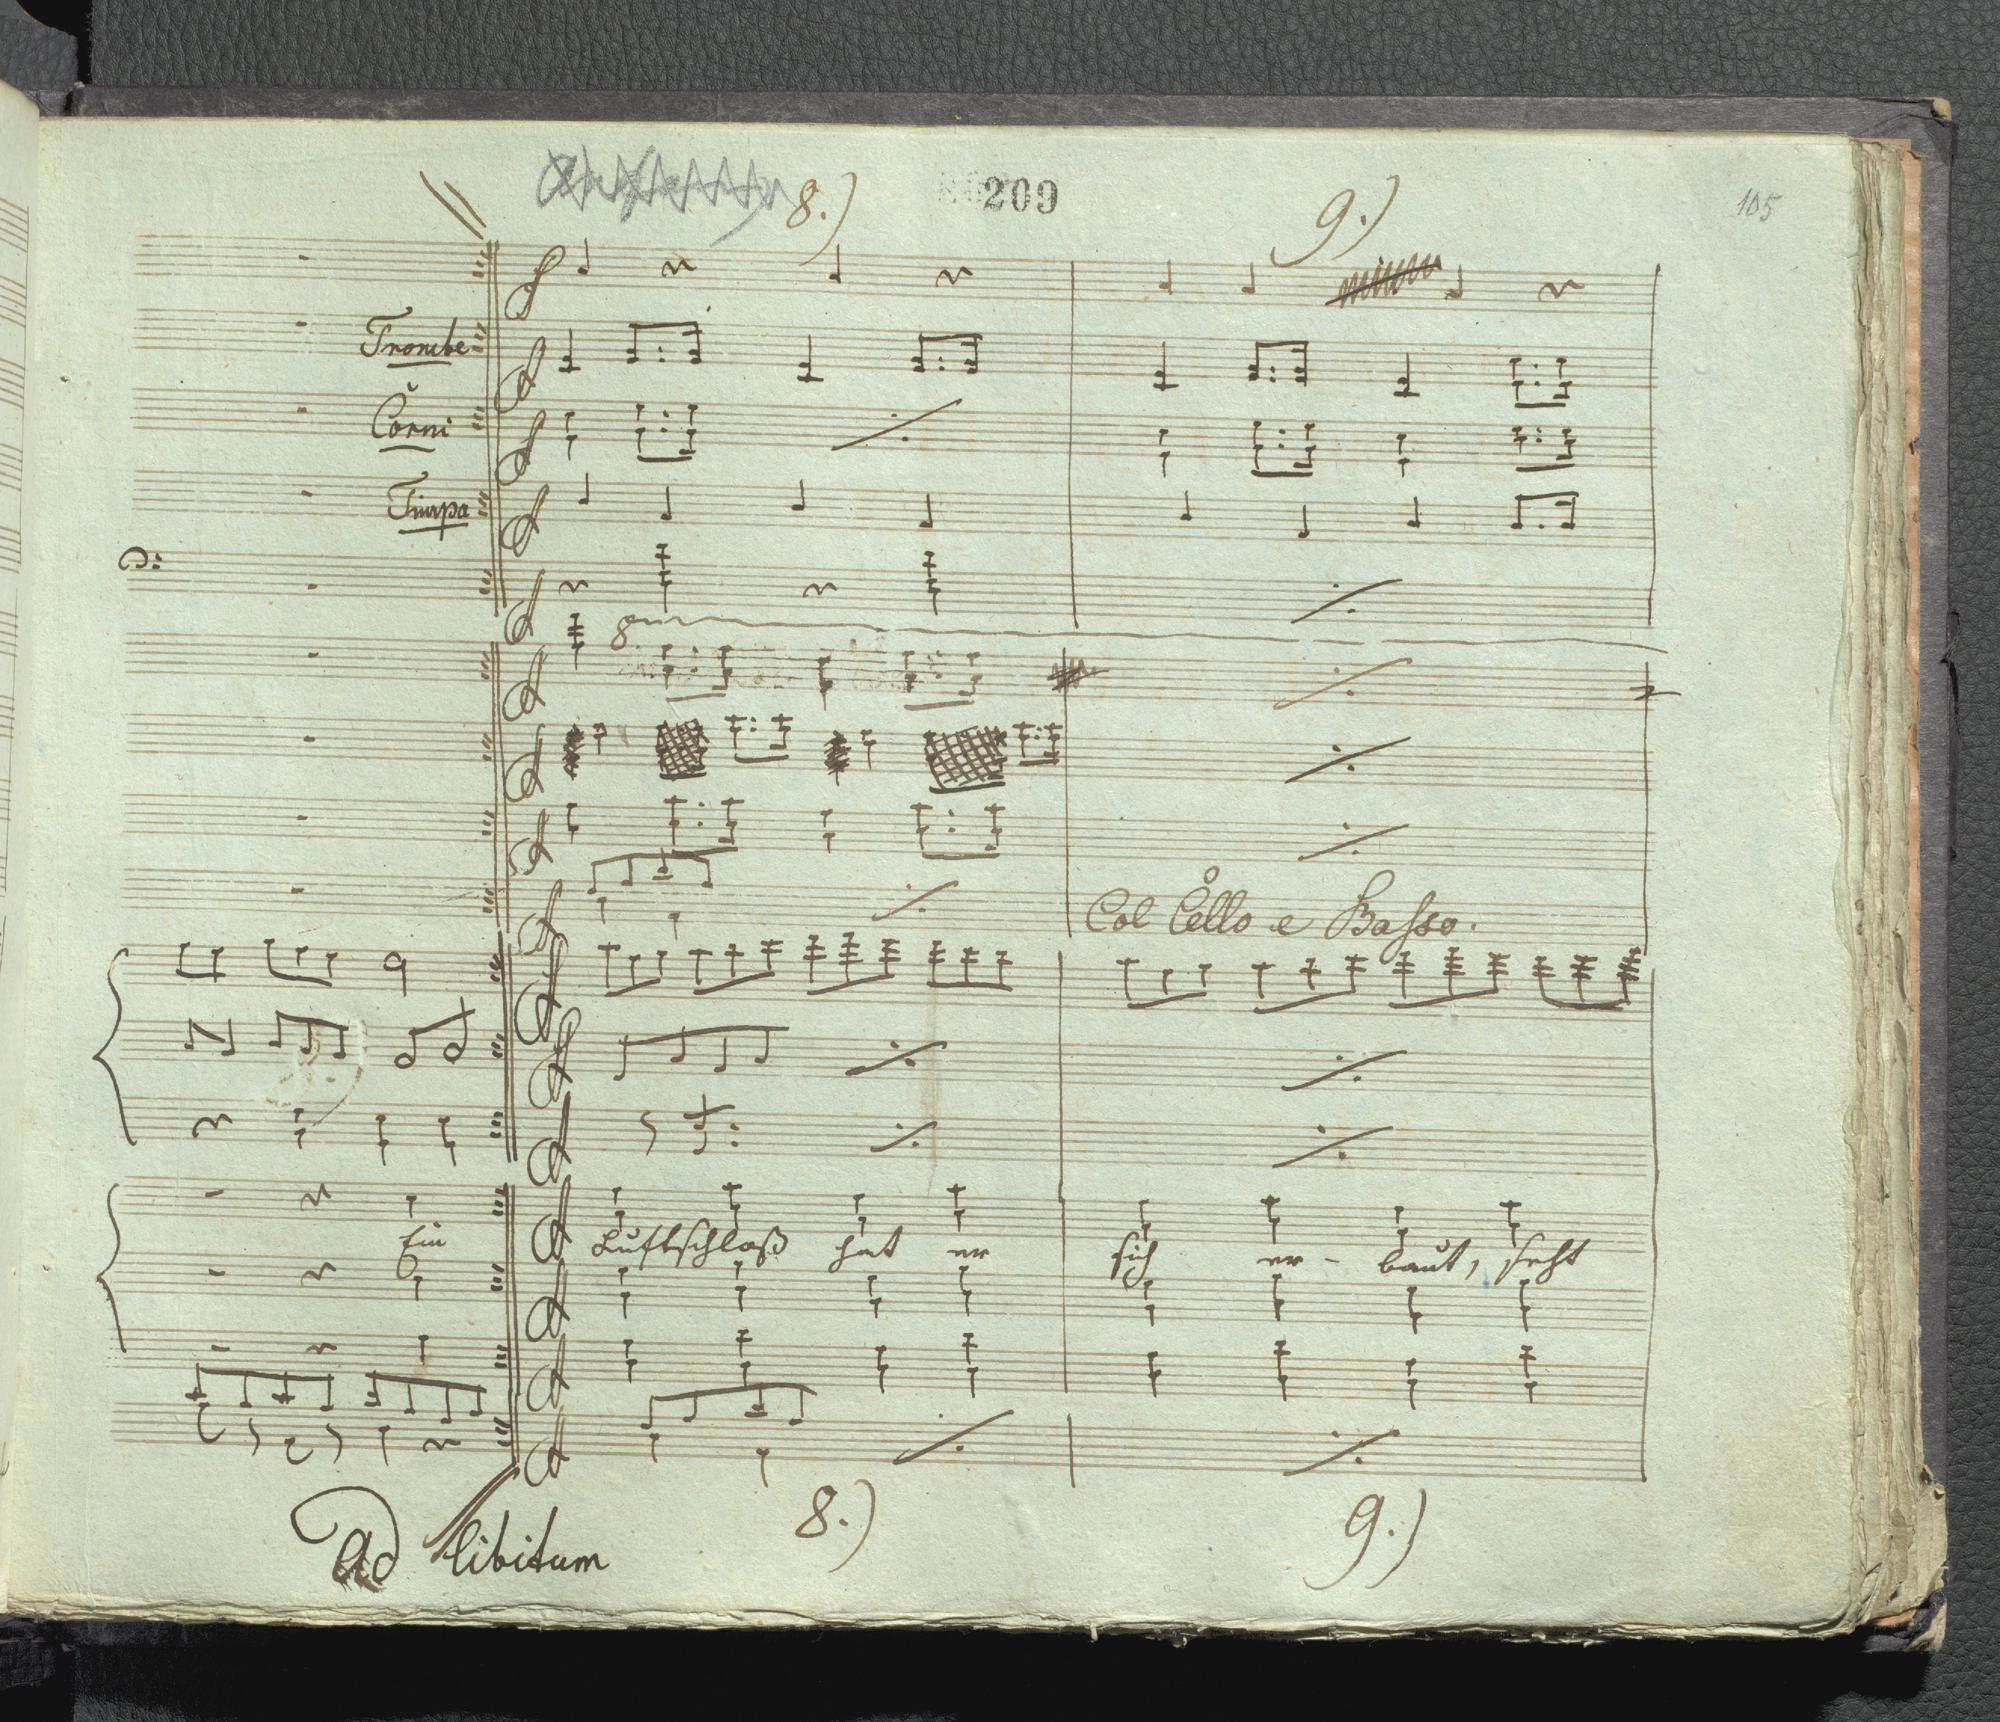 8.) 209 9.) 105
Trombe
Corni
Timpa
8
Col Cello e Basso.
Ein Luftschloß hat er sich er - baut, seht
8.) 9.)
ad libitum